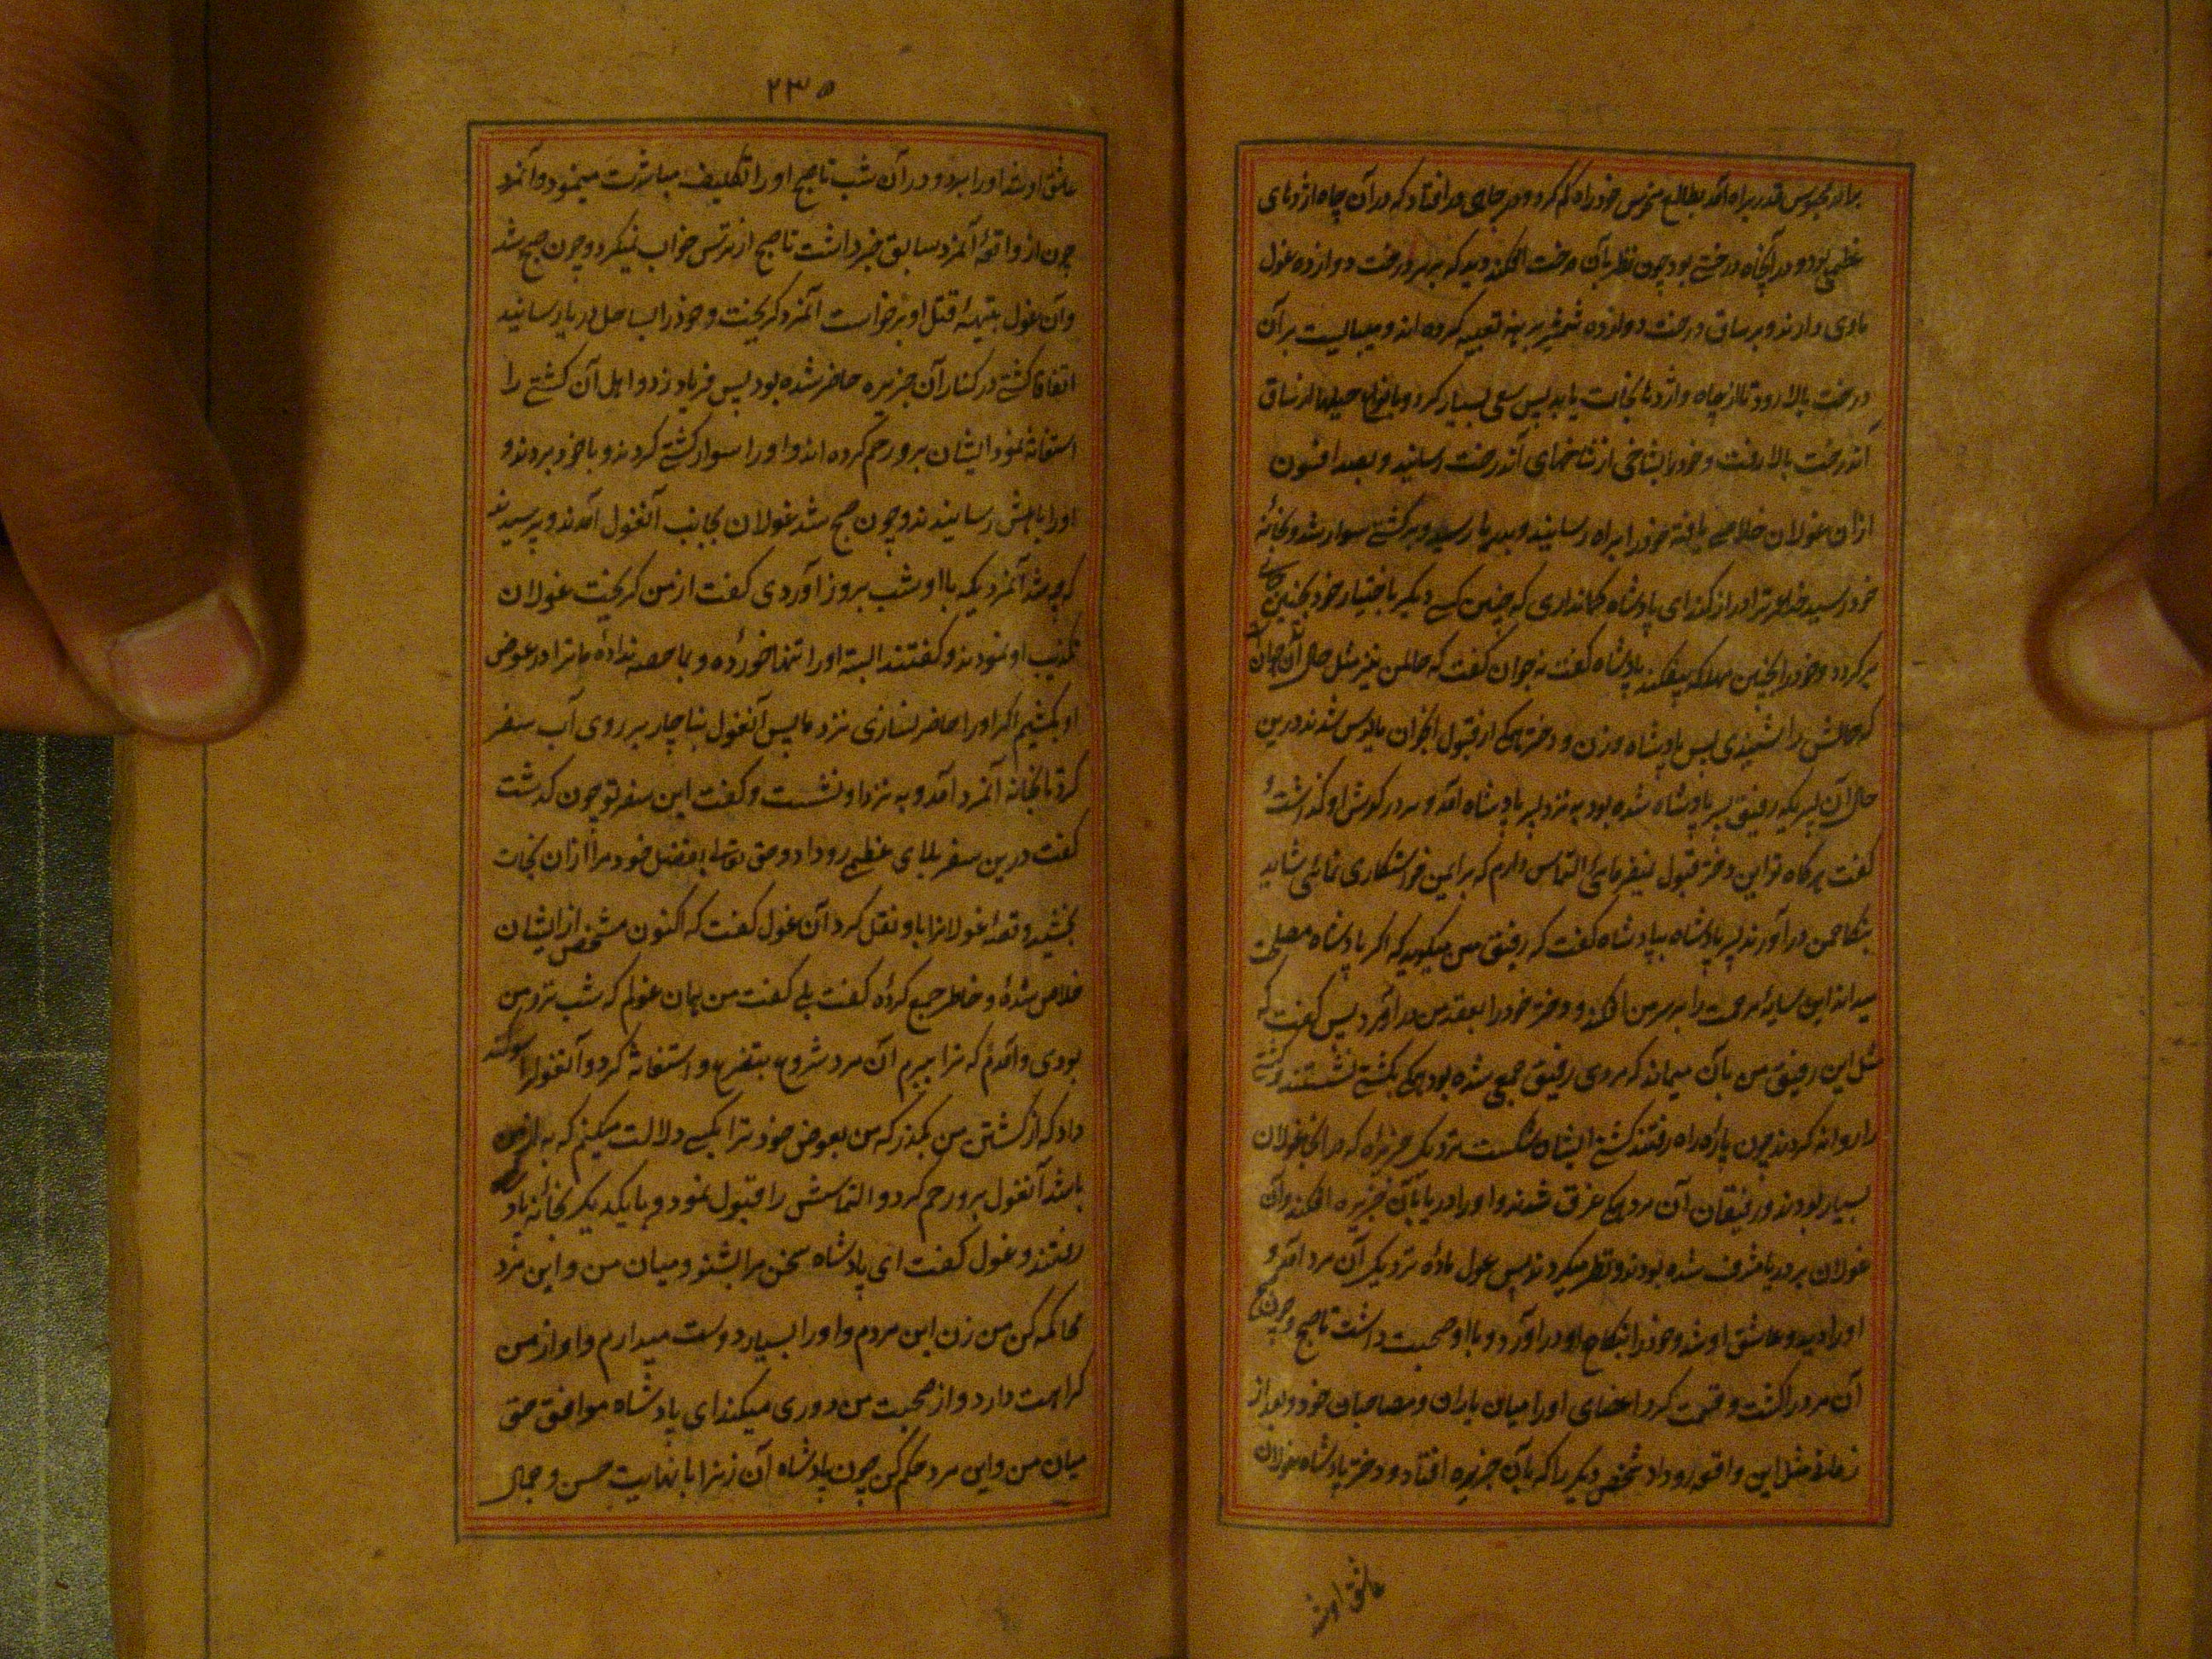 برادر محبوس قدر براه آمد بطالع منحوس خود راه گم کرد و در چاهی در افتاد که در آن چاه اژدهای
عظیم بود و در آنچاه درختی بود چون نظر بآن درخت افکند دید که بر سر درخت دوازده غول
ماوی دارند و بر ساق درخت دوازده شمشیر برهنه تعبیه کرده اند و میبایست بر آن
درخت بالا رود تا از چاه و اژدها نجات یابد پس سعی بسیار کرد و بانواع حیلها از ساق
آندرخت بالا رفت و خود را بشاخی از شاخهای آندرخت رسانید و بصد افسون
ازان غولان خلاصی یافته خود را براه رسانید و بدریا رسید و بر کشتی سوار شد و بخانهٔ
خود رسید ای پادشاه کمانداری که چنین کسی دیگر باختیار خود بچنین جائی
بر گردد و خود را بچنین مهلکه بیفکند پادشاه گفت نه جوان گفت که حال من نیز مثل حال آن جوان است
که حالش را شنیدی پس پادشاه و زن و دختر همگی از قبول ایشان مایوس شدند درین
حال آن پسریکه رفیق پسر پادشاه شده بود به نزد پسر پادشاه آمد و سر در گوش او گذاشته
گفت هر گاه تو این دختر قبول نیفرمائی التماس دارم که برای من خواستگاری نمائی شاید
بنکاح من در آورند پسر پادشاه بپادشاه گفت که رفیق من میگوید که اگر پادشاه مصلحت
میداند این سایهٔ مرحمت را بر سر من افکند و دختر خود را بعقد من در آورد پس گفت که
مثل این رفیق من بآن میماند که مردی رفیق جمعی شده بود همگی بکشتی نشستند و کشتی
را روانه کردند چون پارهٔ راه رفتند کشتی ایشان شکست نزدیک جزیرهٔ که در انجا غولان
بسیار بودند و رفیقان آن مرد همگی غرق شدند و او را دریا بآن جزیره افکند و آن
غولان بر دریا مشرف شده بودند و نظر میکردند پس غول مادهٔ نزدیک آن مرد آمد و
او را دید و عاشق او شد و خود را بنکاح او در آورد و با او صحبت داشت تا صبح و چون صبح شد
آن مرد را کشت و قسمت کرد اعضای او را میان یاران و مصاحبان خود و بعد از
زمانی مثل این واقعه رو داد شخص دیگر را که بآن جزیره افتاد و دختر پادشاه غولان
عاشق او شد
۲۳۵
عاشق او شد و او را برد و در آن شب تا صبح او را تکلیف مباشرت مینمود و آنمرد
چون از واقعهٔ آنمرد سابق خبر داشت تا صبح از ترس خواب نمیکرد و چون صبح شد
و آن غول بتهیهٔ قتل او برخواست آنمرد گریخت و خود را بساحل دریا رسانید
اتفاقا کشتی در کنار آن جزیره حاضر شده بود پس فریاد زد و اهل آن کشتی را
استغاثه نمود ایشان برو رحم کرده اند و او را سوار کشتی کردند و با خود بردند و
او را باهلش رسانیدند و چون صبح شد غولان بجانب آنغول آمدند و پرسیدند
که چه شد آنمردیکه با او شب بروز آوردی گفت از من گریخت غولان
تکذیب او نمودند و گفتند البته او را تنها خوردهٔ و بما حصه ندادهٔ ما ترا در عوض
او بکشیم اگر او را حاضر نسازی نزد ما پس آنغول بناچار بر روی آب سفر
کرد تا بخانه آنمرد آمد و به نزد او نشست و گفت این سفر تو چون گذشت
گفت درین سفر بلای عظیمی رو داد و حق تعالی بفضل خود مرا ازان نجات
بخشید و قصهٔ غولانرا باو نقل کرد آن غول گفت که اکنون مشخص از ایشان
خلاص شدهٔ و خاطر جمع کردهٔ گفت بلی گفت من همان غولم که شب نزد من
بودی و آمدم که ترا ببرم آن مرد شروع بتضرع و استغاثه کرد و آنغولرا سوگند
داد که از کشتن من بگذر که من بعوض خود ترا بکسی دلالت میکنم که به از من
باشد آنغول برو رحم کرد و التماسش را قبول نمود و با یکدیگر بخانهٔ پادشاه
رفتند و غول گفت ای پادشاه سخن مرا بشنو و میان من و این مرد
محاکمه کن من زن این مردم و او را بسیار دوست میدارم و او از من
کراهت دارد و از صحبت من دوری میکند ای پادشاه موافق حق
میان من و این مرد حکم کن چون پادشاه آن زنرا با نهایت حسن و جمال